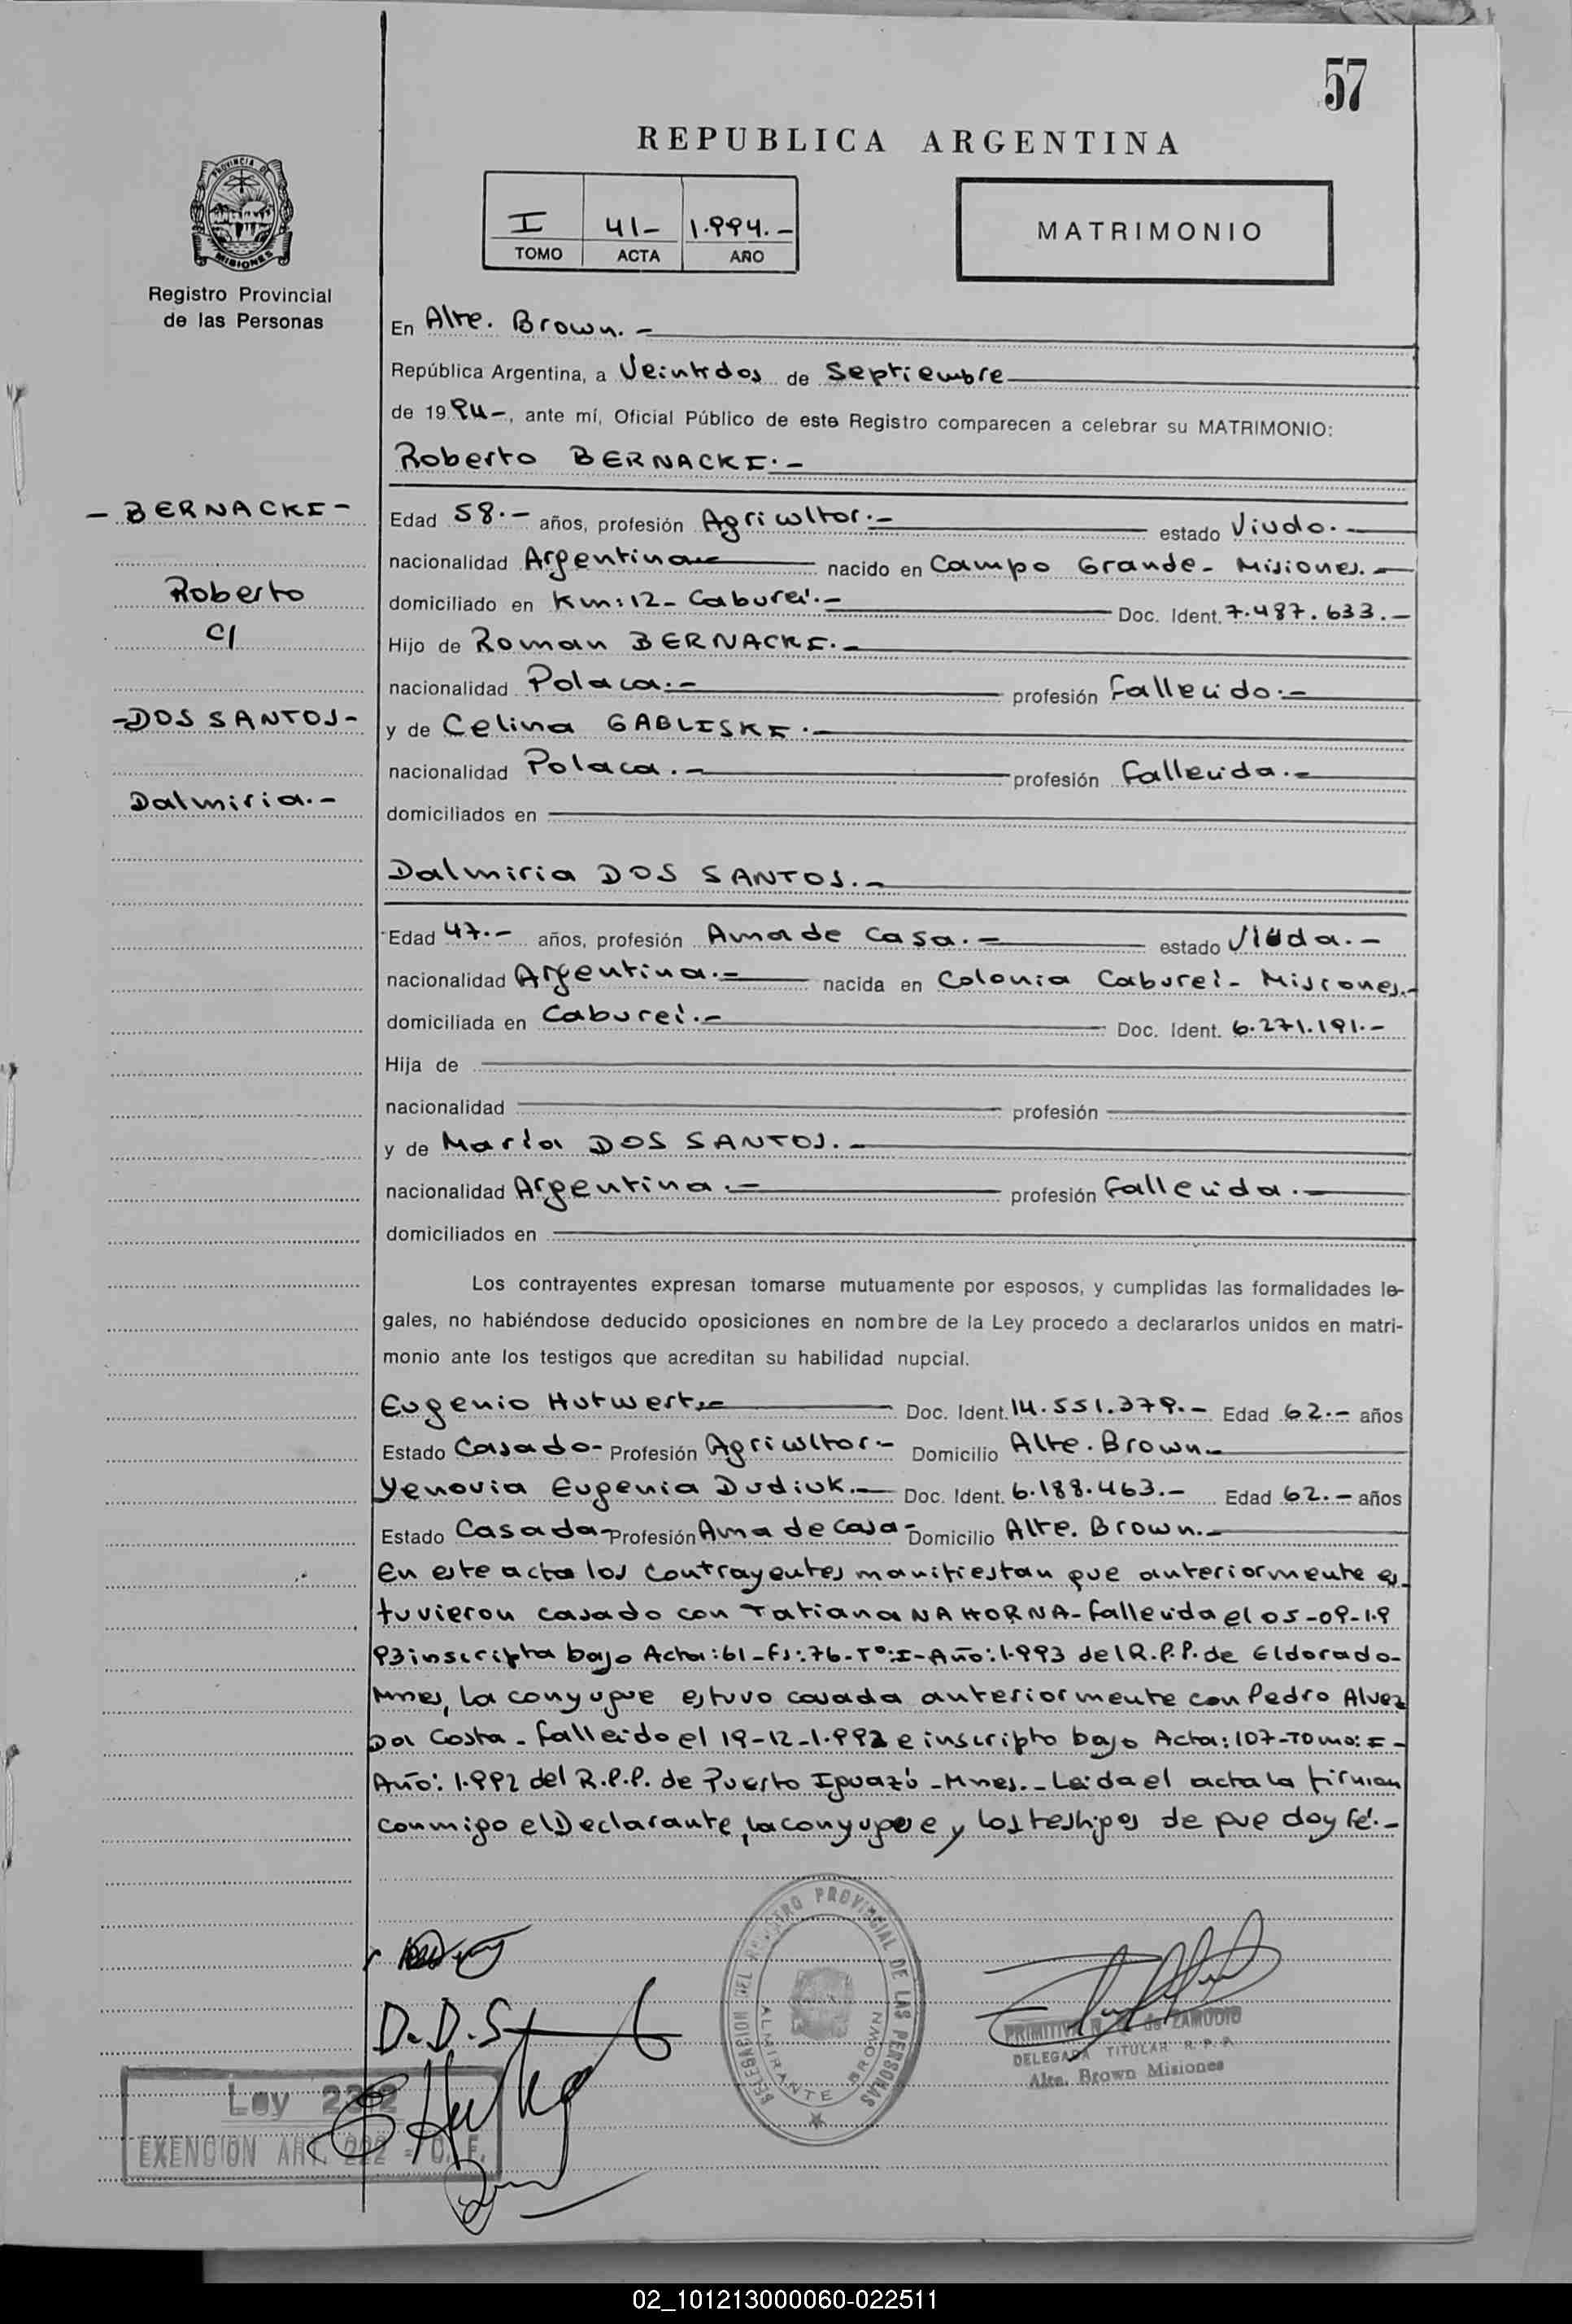 57
REPUBLICA ARGENTINA
I 41- 1.994.-
TOMO ACTA AÑO
MATRIMONIO
PROVINCIA DE
MISIONES
Registro Provincial
de las Personas
En Alte. Brown.-
República Argentina, a Veintidos de Septiembre
de 1994-, ante mí, Oficial Público de este Registro comparecen a celebrar su MATRIMONIO:
Roberto BERNACKI.-
- BERNACKI -
Roberto
C/
-DOS SANTOS-
Dalmiria.-
Edad 58.- años, profesión Agricultor.- estado Viudo.-
nacionalidad Argentina nacido en Campo Grande- Misiones.-
domiciliado en Km:12- Caburei.- Doc. Ident. 7.487.633.-
Hijo de Roman BERNACKI.-
nacionalidad Polaca.- profesión fallecido.-
y de Celina GABLISKI.-
nacionalidad Polaca.- profesión fallecida.-
domiciliados en
Dalmiria DOS SANTOS.-
Edad 47.- años, profesión Ama de Casa.- estado Viuda.-
nacionalidad Argentina.- nacida en Colonia Caburei- Misiones.-
domiciliada en Caburei.- Doc. Ident. 6.271.191.-
Hija de
nacionalidad profesión
y de María DOS SANTOS.-
nacionalidad Argentina.- profesión fallecida.-
domiciliados en
Los contrayentes expresan tomarse mutuamente por esposos, y cumplidas las formalidades le-
gales, no habiéndose deducido oposiciones en nombre de la Ley procedo a declararlos unidos en matri-
monio ante los testigos que acreditan su habilidad nupcial.
Eugenio Hutwert.- Doc. Ident. 14.551.379.- Edad 62.- años
Estado Casado- Profesión Agricultor- Domicilio Alte. Brown.-
Yenovia Eugenia Dudiuk.- Doc. Ident. 6.188.463.- Edad 62.- años
Estado Casada- Profesión Ama de Casa- Domicilio Alte. Brown.-
En este acta los contrayentes manifiestan que anteriormente es-
tuvieron casado con Tatiana NAHORNA- fallecida el 05-09-19
93 inscripta bajo Acta:61-Fs:76-Tº:I-Año:1.993 del R.P.P. de Eldorado-
Mnes, La conyugue estuvo casada anteriormente con Pedro Alvez
Da Costa- falleido el 19-12-1.992 e inscripto bajo Acta:107-Tomo:I-
Año: 1.992 del R.P.P. de Puerto Iguazú -Mnes.- Leida el acta la firman
conmigo el Declarante, la conyugue y los testigos de que doy fé.-
D. D. S
DELEGACION DEL REGISTRO PROVINCIAL DE LAS PERSONAS
ALMIRANTE BROWN
de ZAMUDIO
DELEGADA TITULAR R.P.P.
Alte. Brown Misiones
Ley
EXENCION ART. 222 - C.F.
02_101213000060-022511